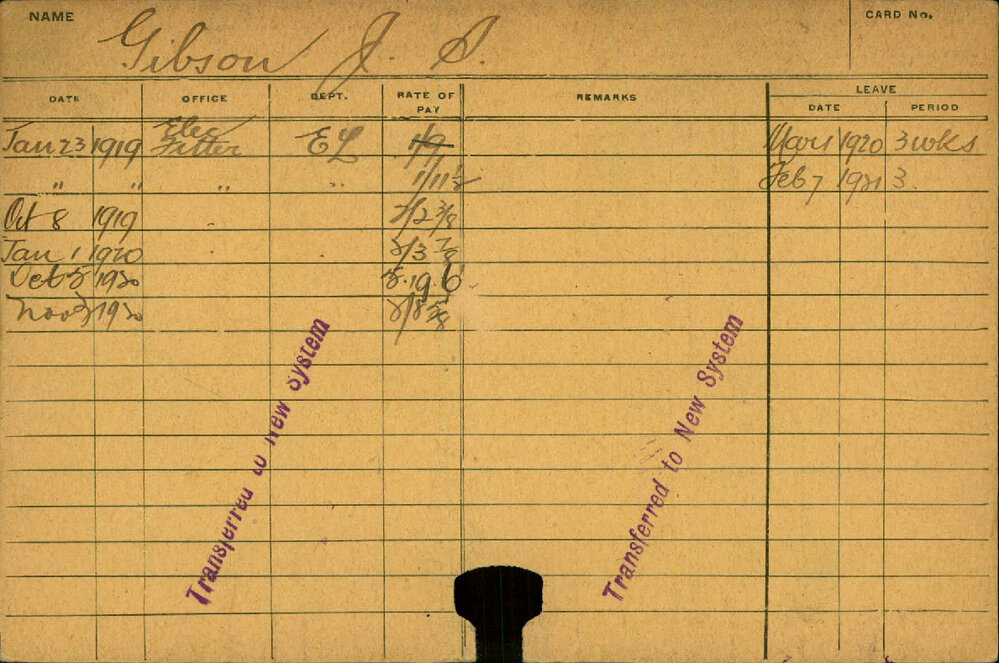 NAME Gibson J. S. CARD No.
DATE OFFICE DEPT. RATE OF PAY REMARKS LEAVE
DATE PERIOD
Jan 23 1919 Elec Fitter EL 1/9 Mar 1 1920 3 wks
" " " " 1/11 ½ Feb 7 1921 3
Oct 8 1919 2/2 3/8
Jan 1 1920 2/3 7/8
Oct 5 1920 5.19.6
Nov 1920
Transferred to New System
Transferred to New System